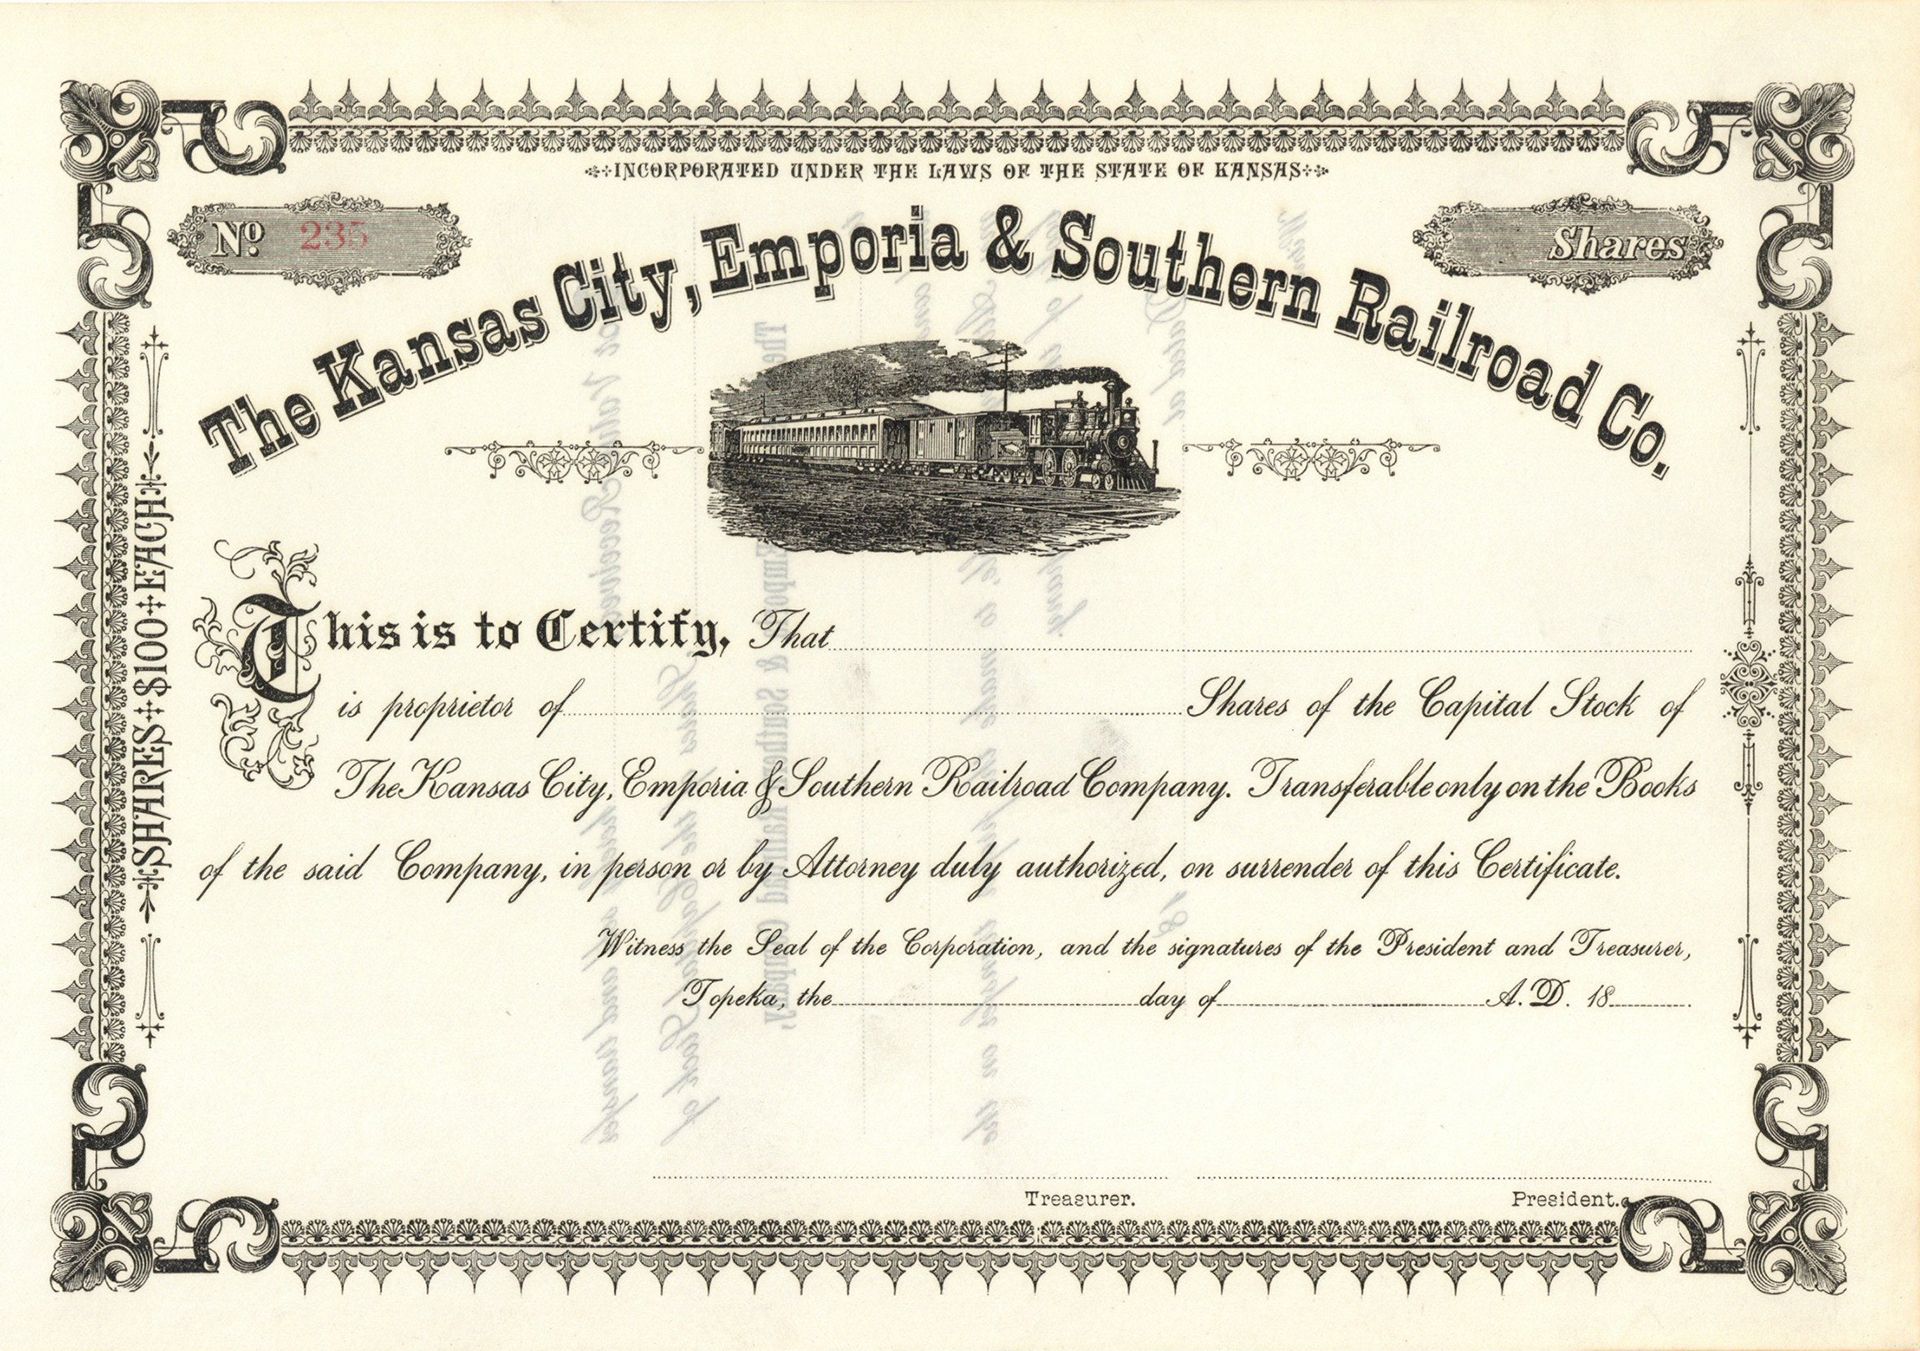 INCORPORATED UNDER THE LAWS OF THE STATE OF KANSAS
No. 235
Shares
The Kansas City, Emporia & Southern Railroad Co.
SHARES $100 EACH
This is to Certify, That
is proprietor of Shares of the Capital Stock of
The Kansas City, Emporia & Southern Railroad Company. Transferable only on the Books
of the said Company, in person or by Attorney duly authorized, on surrender of this Certificate.
Witness the Seal of the Corporation, and the signatures of the President and Treasurer,
Topeka, the day of A.D. 18
Treasurer. President.